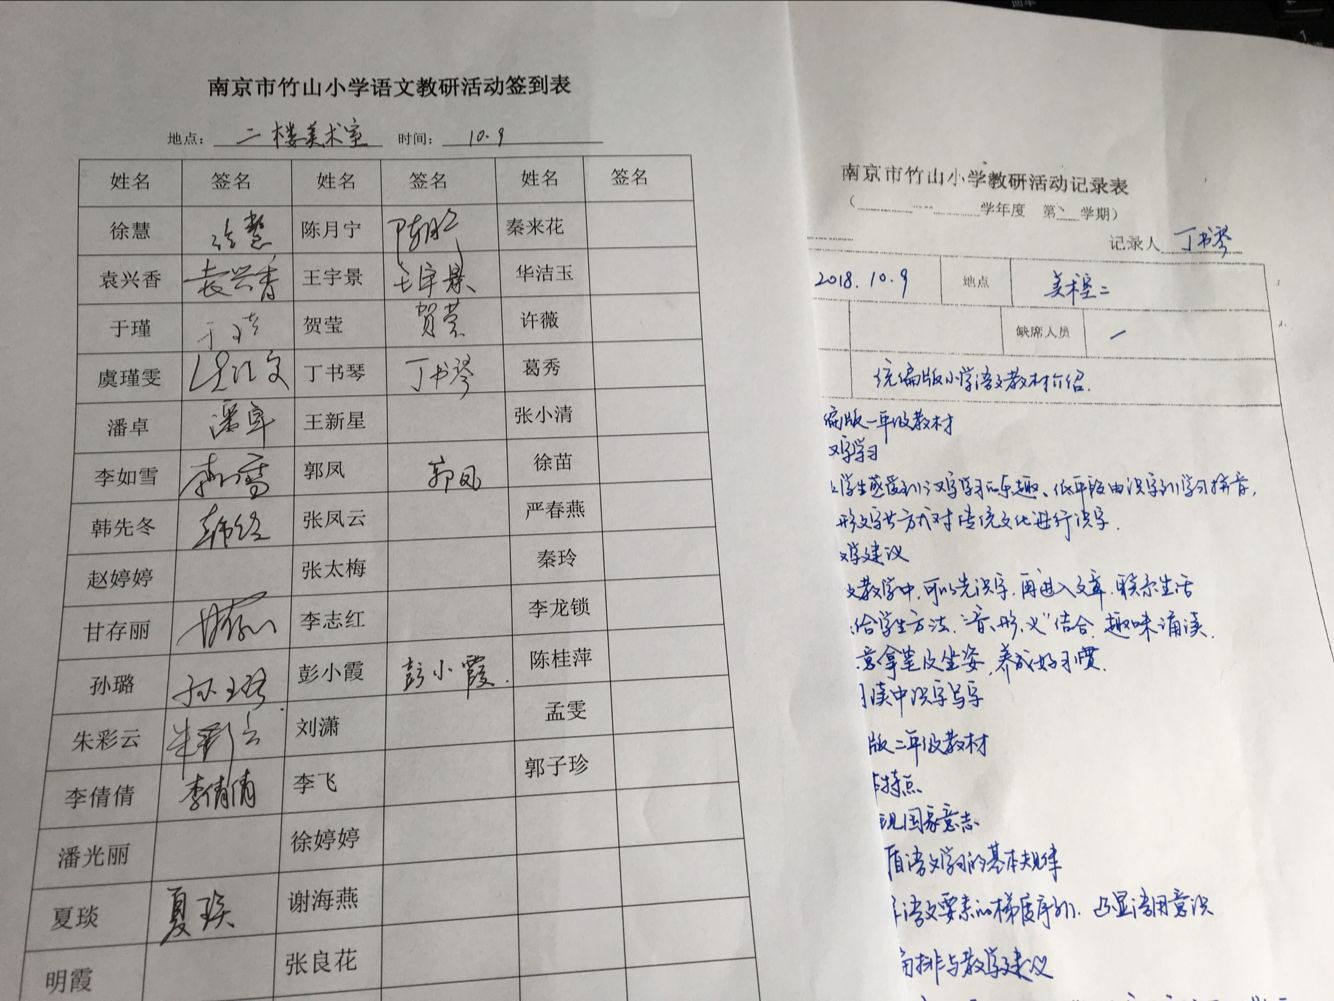 南京市竹山小学语文教研活动签到表
地点： 二楼美术室 时间： 10.9
姓名 签名 姓名 签名 姓名 签名
徐慧 徐慧 陈月宁 秦来花
袁兴香 袁兴香 王宇景 王宇景 华洁玉
于瑾 于瑾 贺莹 贺莹 许薇
虞瑾雯 丁书琴 丁书琴 葛秀
潘卓 潘卓 王新星 张小清
李如雪 李如雪 郭凤 郭凤 徐苗
韩先冬 张凤云 严春燕
赵婷婷 张太梅 秦玲
甘存丽 甘存丽 李志红 李龙锁
孙璐 孙璐 彭小霞 彭小霞 陈桂萍
朱彩云 朱彩云 刘潇 孟雯
李倩倩 李倩倩 李飞 郭子珍
潘光丽 徐婷婷
夏琰 夏琰 谢海燕
明霞 张良花
南京市竹山小学教研活动记录表
（ 学年度 第 学期）
记录人 丁书琴
2018.10.9 地点
缺席人员
统编版小学语文教材介绍.
编版一年级教材
汉字学习
学生感受到汉字学习的乐趣、低年级由识字到学习拼音，
形文字等方式对传统文化进行识字.
教学建议
文教学中,可以先识字,再进入文章.联系生活
给学生方法."音、形、义"结合.趣味诵读.
意拿笔及坐姿,养成好习惯.
阅读中识字写字
版二年级教材
特点
现国家意志
循语文学习的基本规律
语文要素的梯度序列. 凸显语用意识
编排与教学建议